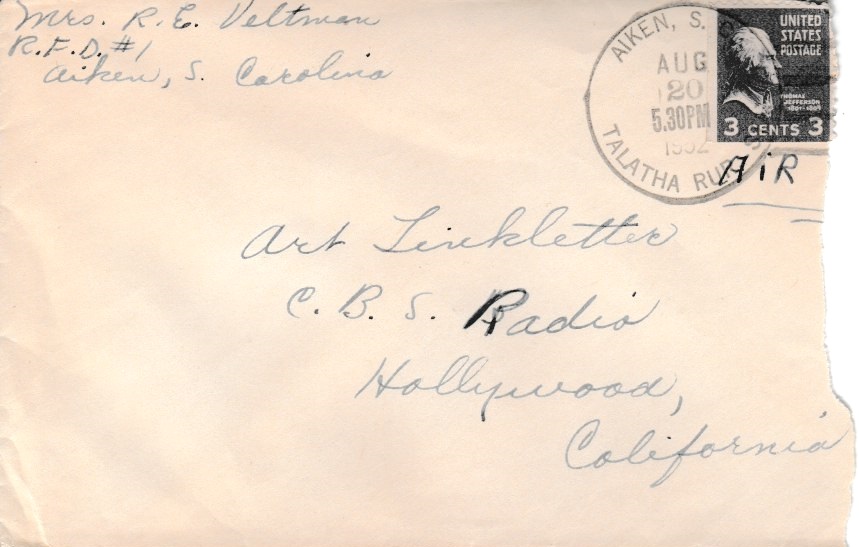 Mrs. R. E. Veltman
R.F.D. #1
Aiken, S. Carolina
AIKEN, S.
AUG
20
5.30PM
1952
TALATHA RUR
UNITED
STATES
POSTAGE
THOMAS
JEFFERSON
1801-1809
3 CENTS 3
AiR
Art Linkletter
C. B. S. Radio
Hollywood,
California